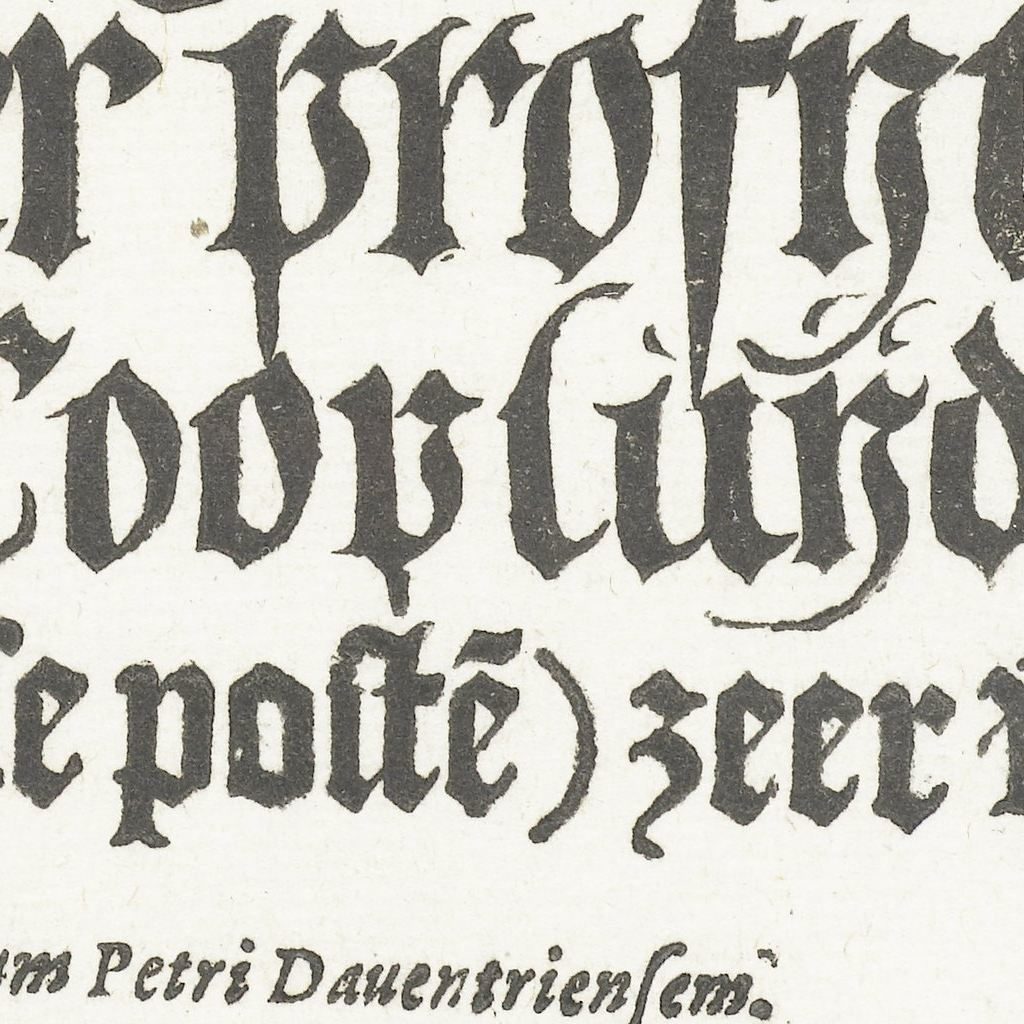 r profy
Coopluyd
e poſtē) zeer
um Petri Dauentrienſem.